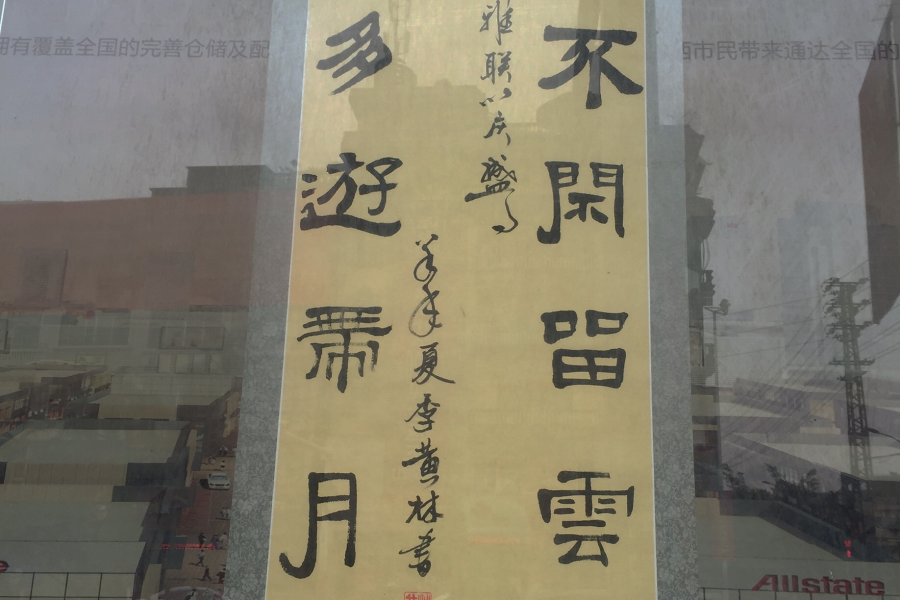 不閑留雲
雅联以庆盛
多遊帶月
羊年夏李黄林书
拥有覆盖全国的完善仓储及配
西市民带来通达全国的
Allstate